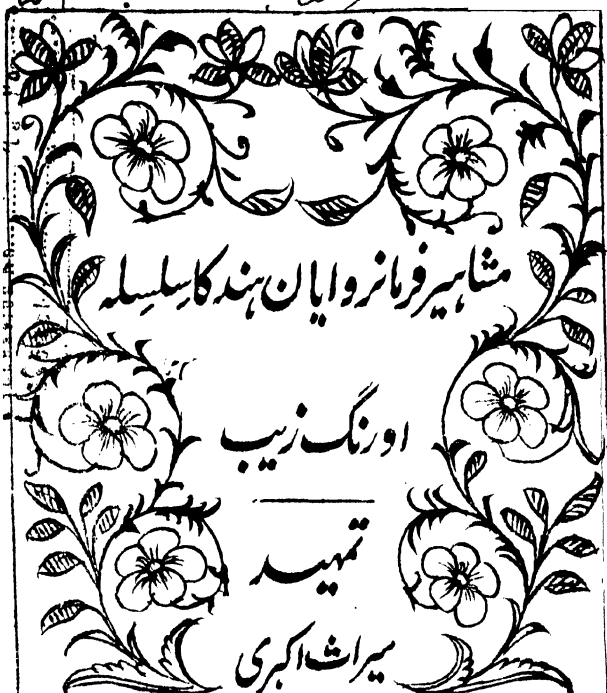 مشاہیر فرمانروایان ہند کا سلسلہ
اورنگ زیب
تمہید
میراث اکبری